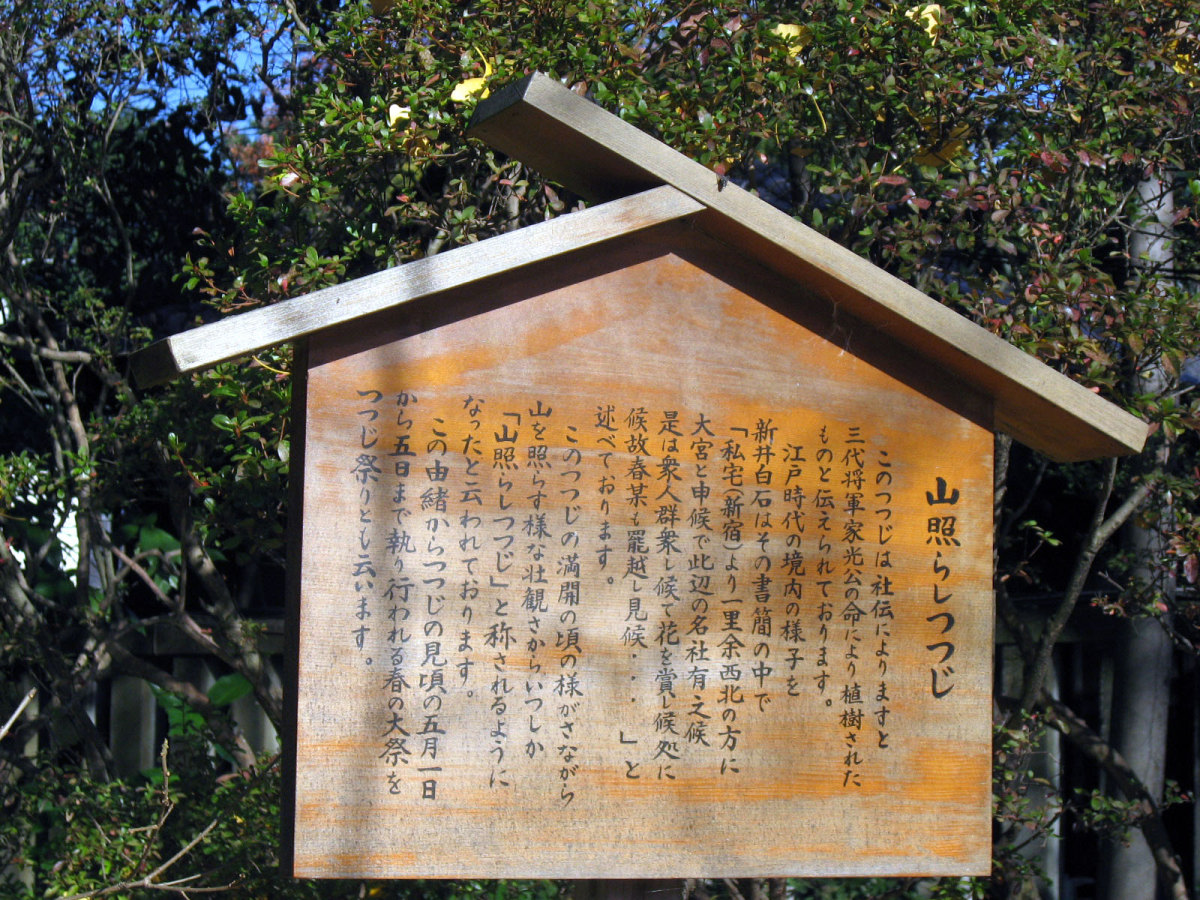 山照らしつつじ
このつつじは社伝によりますと
三代将軍家光公の命により植樹された
ものと伝えられております。
江戸時代の境内の様子を
新井白石はその書簡の中で
「私宅(新宿)より一里余西北の方に
大宮と申候で此辺の名社有之候
是は衆人群衆し候て花を賞し候処に
候故春某も罷越し見候・・・」と
述べております。
このつつじの満開の頃の様がさながら
山を照らす様な壮観さからいつしか
「山照らしつつじ」と称されるように
なったと云われております。
この由緒からつつじの見頃の五月一日
から五日まで執り行われる春の大祭を
つつじ祭りとも云います。